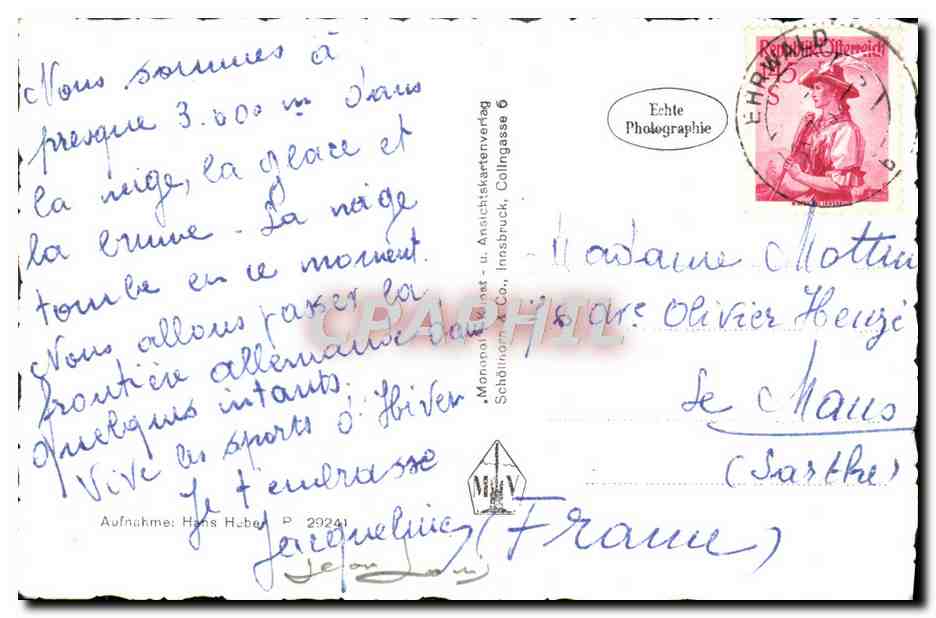 Nous sommes à
presque 3.000 m dans
la neige, la glace et
la brume. La neige
tombe en ce moment.
Nous allons passer la
frontière allemande dans
quelques intants.
Vive les sports d'Hiver
Je t'embrasse
Jacqueline
Jean Louis
Aufnahme: Hans Huber P 29241
„Monopol" Kunst- u. Ansichtskartenverlag
Schöllhorn & Co., Innsbruck, Collngasse 6
Echte
Photographie
EHRWALD
Republik Österreich
S
M V
Madame
Olivier Heuzé
Le Mans
(Sarthe)
(France)
CPAPHIL